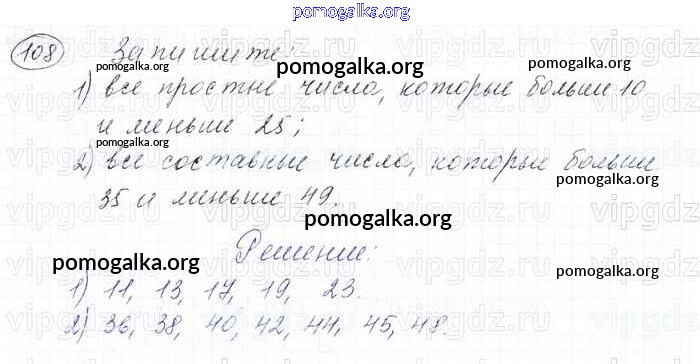 pomogalka.org
108 Запишите:
pomogalka.org
1) все простые числа, которые больше 10
pomogalka.org
и меньше 25;
pomogalka.org
2) все составные числа, которые больше
pomogalka.org
35 и меньше 49.
pomogalka.org
Решение:
pomogalka.org
pomogalka.org
1) 11, 13, 17, 19, 23.
2) 36, 38, 40, 42, 44, 45, 48.
pomogalka.org